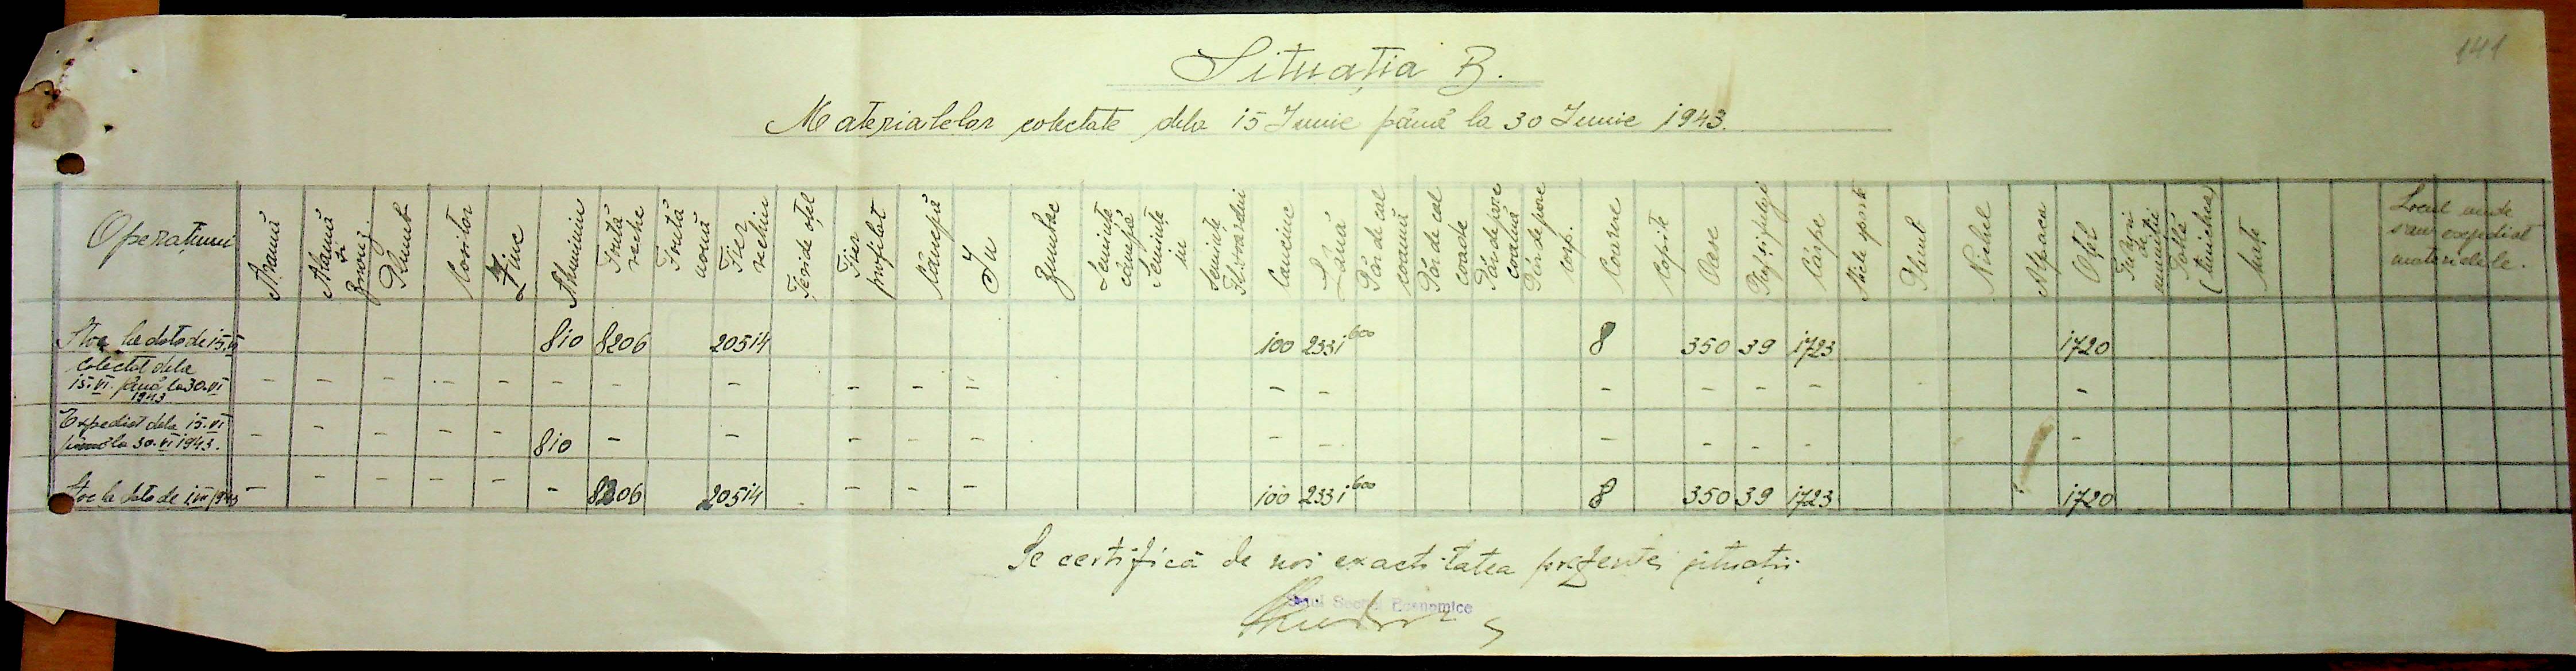 141
Situația B.
Materialelor colectate dela 15 Iunie până la 30 Iunie 1943.
Operațiuni
Aramă
Alamă și bronz
Plumb
Cositor
Zinc
Aluminiu
Fontă veche
Fontă nouă
Fier vechiu
Fier profilat
Cânepă
In
Bumbac
Seminte cânepă
Seminte in
Seminte
Cauciuc
Lână
Păr de cal coamă
Păr de cal coade
Păr de porc
Păr de porc
Coarne
Copite
Oase
Cârpe
Sticle sparte
Plumb
Nichel
Alpaca
Oțel
Tuburi de muniții
Tablă (tinichea)
Locul unde s'au expediat materialele.
Stoc la data de 15.VI 810 8206 20514 100 2331 600 8 350 39 1723 1720
Colectat dela 15.VI. până la 30.VI 1943 - - - - - - - - - - - - - - - - - -
Expediat dela 15.VI până la 30.VI 1943. - - - - - 810 - - - - - - - - - - - -
Stoc la data de 1.VII 1943 - - - - - - 8206 20514 - - - 100 2331 600 8 350 39 1723 1720
Se certifică de noi exactitatea prezentei situații.
Economice